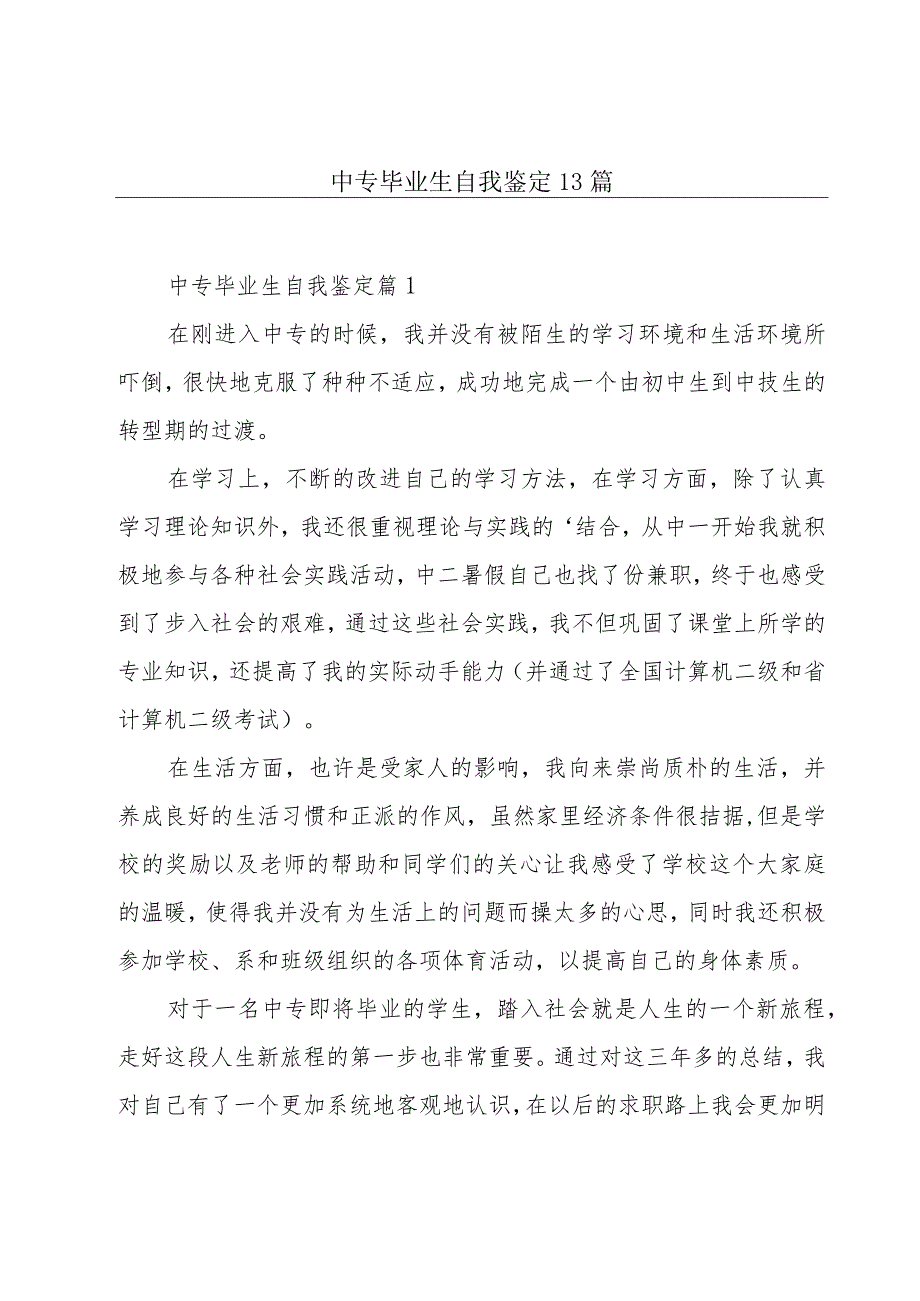 中专毕业生自我鉴定 13 篇
中专毕业生自我鉴定篇 1
在刚进入中专的时候，我并没有被陌生的学习环境和生活环境所
吓倒，很快地克服了种种不适应，成功地完成一个由初中生到中技生的
转型期的过渡。
在学习上，不断的改进自己的学习方法，在学习方面，除了认真
学习理论知识外，我还很重视理论与实践的‘结合，从中一开始我就积
极地参与各种社会实践活动，中二暑假自己也找了份兼职，终于也感受
到了步入社会的艰难，通过这些社会实践，我不但巩固了课堂上所学的
专业知识，还提高了我的实际动手能力（并通过了全国计算机二级和省
计算机二级考试）。
在生活方面，也许是受家人的影响，我向来崇尚质朴的生活，并
养成良好的生活习惯和正派的作风，虽然家里经济条件很拮据,但是学
校的奖励以及老师的帮助和同学们的关心让我感受了学校这个大家庭
的温暖，使得我并没有为生活上的问题而操太多的心思，同时我还积极
参加学校、系和班级组织的各项体育活动，以提高自己的身体素质。
对于一名中专即将毕业的学生，踏入社会就是人生的一个新旅程，
走好这段人生新旅程的第一步也非常重要。通过对这三年多的总结，我
对自己有了一个更加系统地客观地认识，在以后的求职路上我会更加明